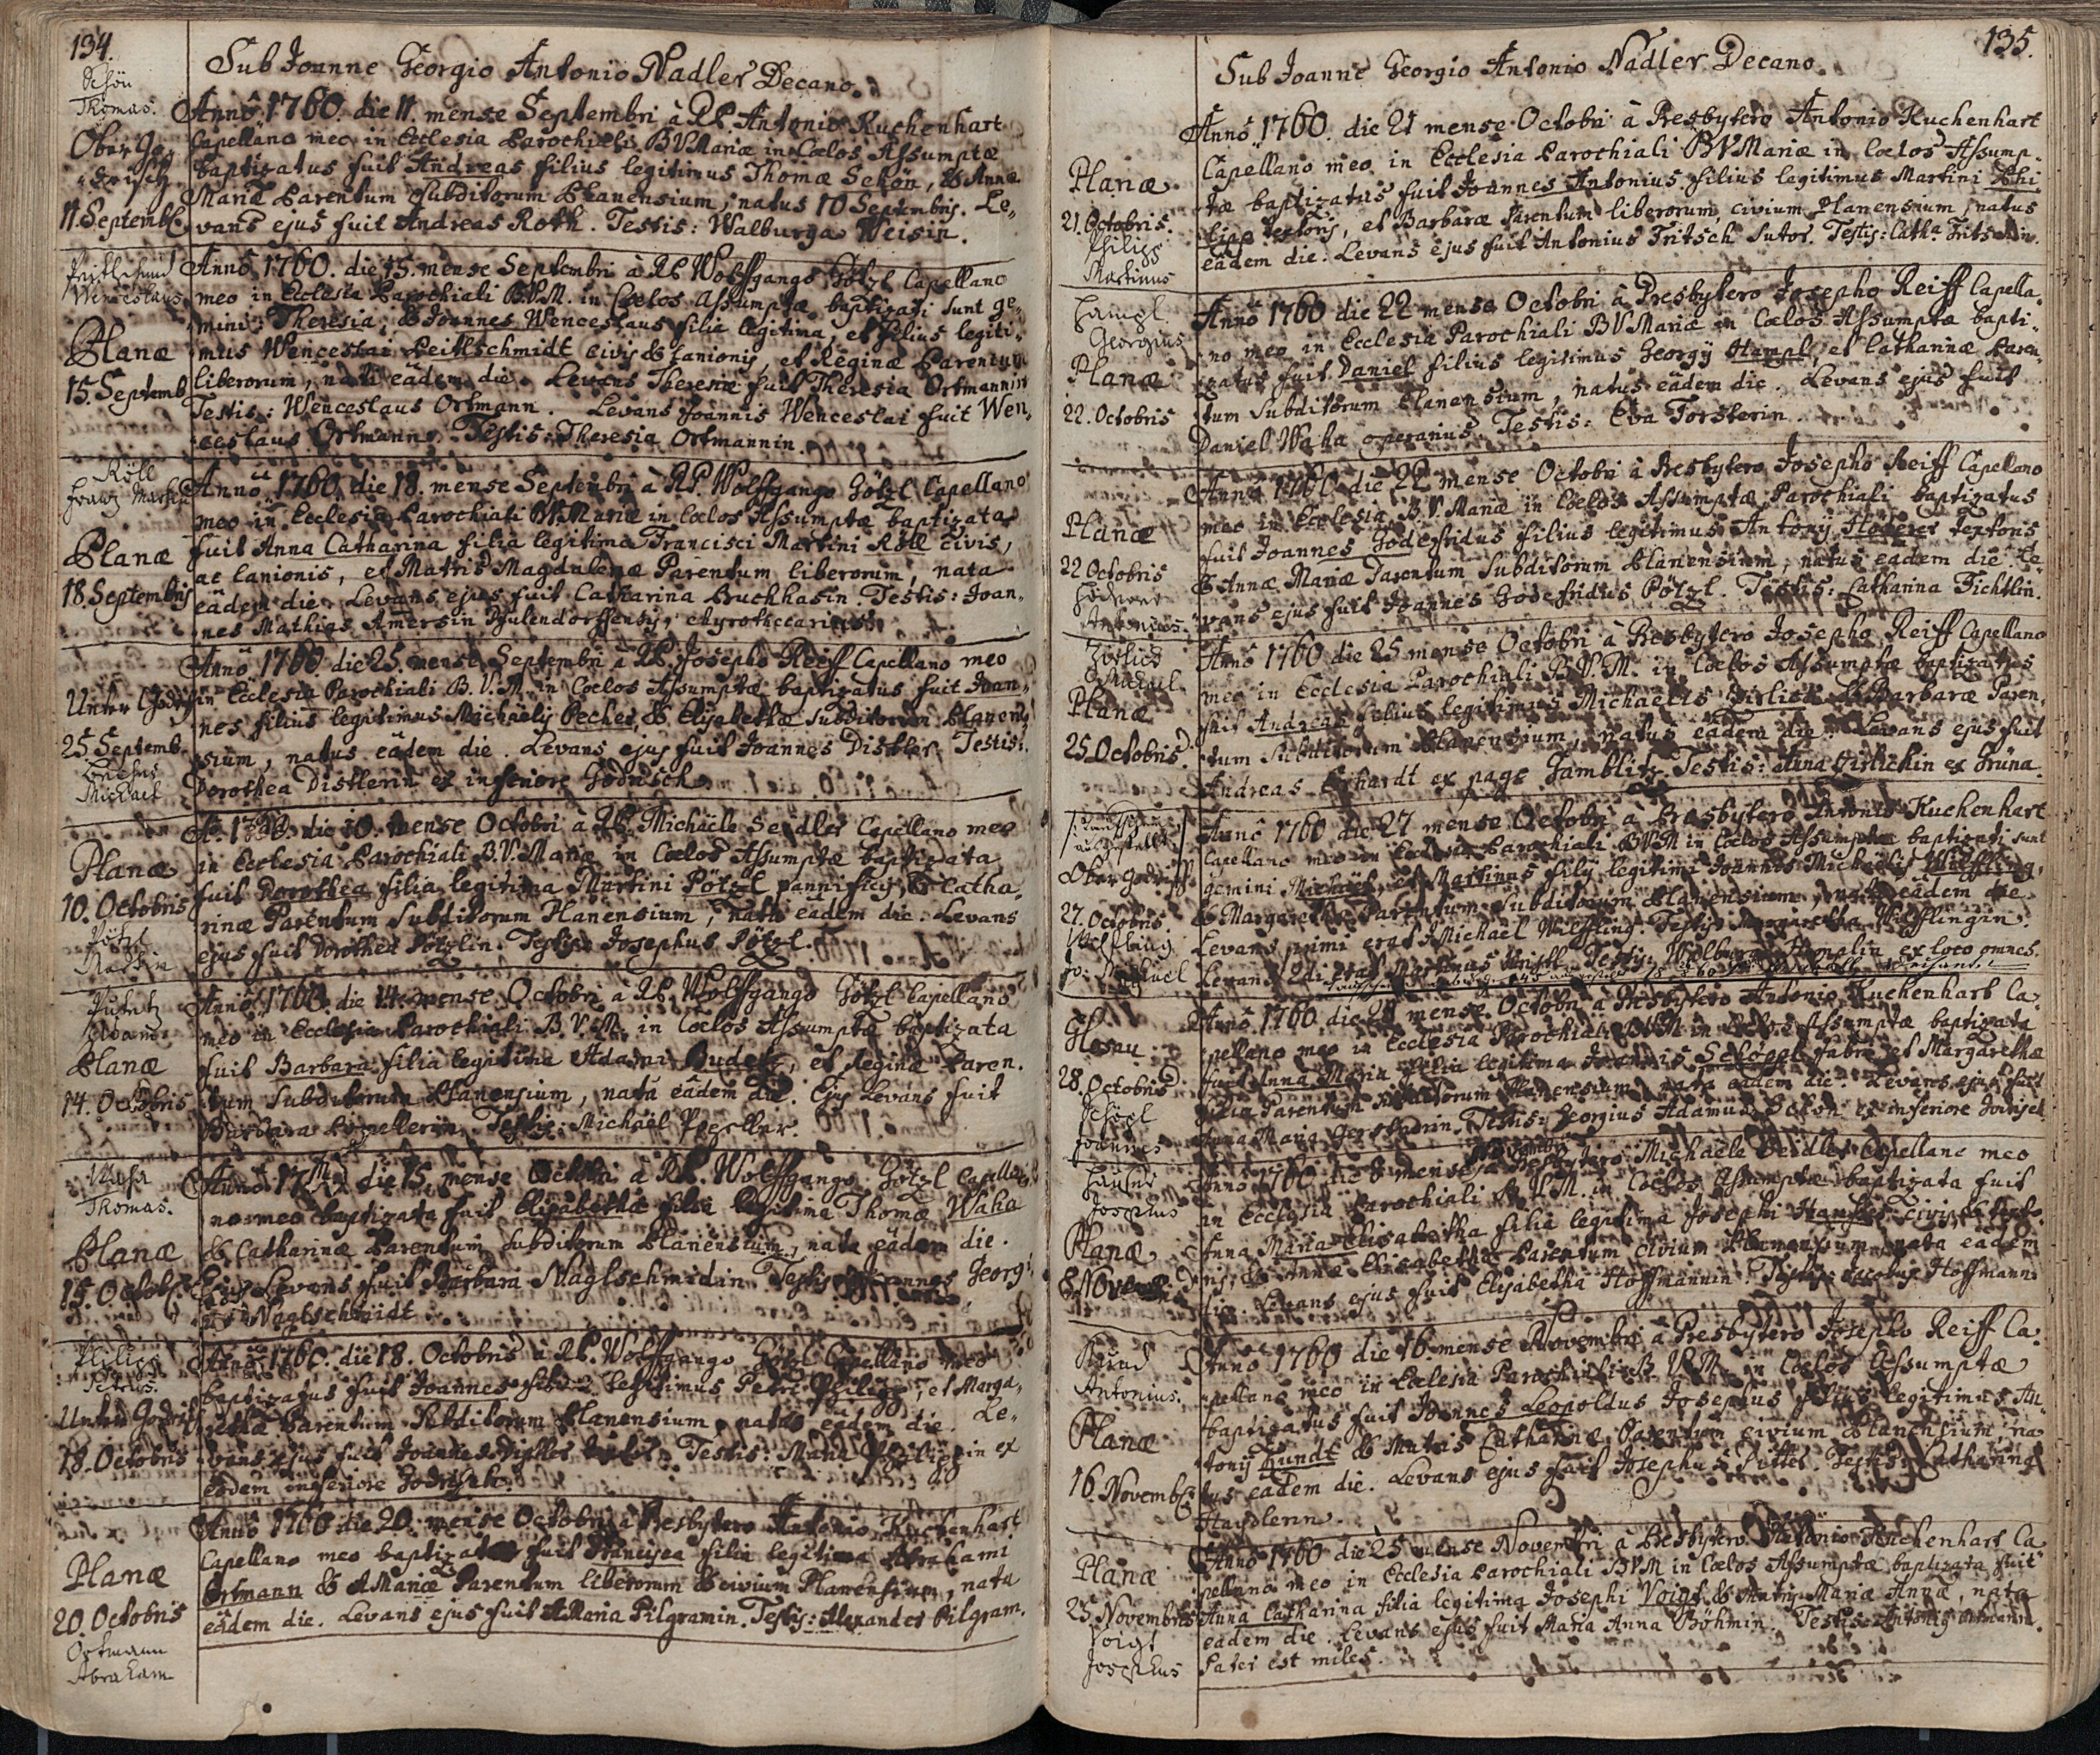 134.
Sub Joanne Georgio Antonio Nadler Decano.
Schön
Thomas.
Ober Go,
drisch
11. Septemb.
Anno 1760. die 11. mense Septembri à R.P. Antonio Kuchenhart
Capellano meo in Ecclesia Parochiali B V Mariæ in Cœlos Assumptæ
baptizatus fuit Andreas filius legitimus Thomæ Schön, & Annæ
Mariæ Parentum Subditorum Planensium, natus 10 Septembris. Le,,
vans ejus fuit Andreas Roth. Testis: Walburga Weisin.
Wenceslaus
Planæ
15. Septemb
Anno 1760. die 15. mense Septembri à R.P. Wolffgango Götzl Capellano
meo in Ecclesia Parochiali B.V.M. in Cœlos Assumptæ baptizati sunt ge,,
mini: Theresia, & Joannes Wenceslaus filia legitima, et filius legiti,,
mus Wenceslai Peitlschmidt civis & lanionis, et Reginæ Parentum
liberorum, nati eâdem die. Levans Theresiæ fuit Theresia Ortmannin
Testis: Wenceslaus Ortmann. Levans Joannis Wenceslai fuit Wen,,
ceslaus Ortmann. Testis: Theresia Ortmannin.
Röll
Franz Martin
Planæ
18. Septembris
Anno 1760. die 18. mense Septembri à R.P. Wolffgango Götzl Capellano
meo in Ecclesia Parochiali B.V. Mariæ in Cœlos Assumptæ baptizata
fuit Anna Catharina filia legitima Francisci Martini Röll civis,
ac lanionis, et Matris Magdalenæ Parentum liberorum, nata
eâdem die. Levans ejus fuit Catharina Bruckhasin. Testis: Joan,,
nes Mathias Amersin
Unter Godrisch
25 Septemb.
Michael
Anno 1760. die 25. mense Septembri à R.P. Josepho Reiff Capellano meo
in Ecclesia Parochiali B.V.M. in Cœlos Assumptæ baptizatus fuit Joan,,
nes filius legitimus Michaëlis Pecher, & Elisabethæ Subditorum Planen,,
sium, natus eâdem die. Levans ejus fuit Joannes Distler. Testis:
Dorothea Distlerin ex inferiore Godrisch.
Planæ
10. Octobris
Pötzl
Martin
Aº 1760. die 10. mense Octobri à R.P. Michaële Seidler Capellano meo
in Ecclesia Parochiali B.V. Mariæ in Cœlos Assumptæ baptizata
fuit Dorothea filia legitima Martini Pötzl pannificis, & Catha,
rinæ Parentum Subditorum Planensium, nata eâdem die. Levans
ejus fuit Dorothea Pötzlin. Testis: Josephus Pötzl.
Adam
Planæ
14. Octobris
Anno 1760. die 14. mense Octobri à R.P. Wolffgango Götzl Capellano
meo in Ecclesia Parochiali B.V.M. in Cœlos Assumptæ baptizata
fuit Barbara filia legitima Adami, et Reginæ Paren,
tum Subditorum Planensium, nata eâdem die. Ejus Levans fuit
Barbara. Testis: Michaël.
Waha
Thomas.
Planæ
15. Octob.
Anno 1760 die 15. mense Octobri à R.P. Wolffgango Götzl Capella,,
no meo baptizata fuit Elisabetha filia legitima Thomæ Waha
& Catharinæ Parentum Subditorum Planensium, nata eâdem die.
Ejus Levans fuit Barbara Naglschmidin. Testis Joannes Georg:
Naglschmidt.
Philipp
Petrus.
Unter Godrisch
18. Octobris
Anno 1760. die 18. Octobris à R.P. Wolffgango Götzl Capellano meo
baptizatus fuit Joannes filius legitimus Petri Philipp, et Marga,,
rethæ Parentum Subditorum Planensium, natus eâdem die. Le,,
vans ejus fuit Joannes Distler. Testis: Maria Philippin ex
eâdem inferiore Godrisch.
Planæ
20. Octobris
Ortmann
Abraham
Anno 1760 die 20. mense Octobri à Presbytero Antonio Kuchenhart
Capellano meo baptizata fuit Francisca filia legitima Abrahami
Ortmann & A Mariæ Parentum liberorum & civium Planensium, nata
eâdem die. Levans ejus fuit A Maria Pilgramin. Testis: Alexander Pilgram.
135.
Sub Joanne Georgio Antonio Nadler Decano.
Planæ
21. Octobris.
Philipp
Martinus
Anno 1760. die 21 mense Octobri à Presbytero Antonio Kuchenhart
Capellano meo in Ecclesia Parochiali B V Mariæ in Cœlos Assump,
tæ baptizatus fuit Joannes Antonius filius legitimus Martini Phi
lipp textoris, et Barbaræ Parentum liberorum, civium Planensium, natus
eâdem die. Levans ejus fuit Antonius Fritsch Sutor. Testis: Cath.a Fritschin.
Hampl
Georgius
Planæ
22. Octobris
Anno 1760 die 22 mense Octobri à Presbytero Josepho Reiff Capella,
no meo in Ecclesia Parochiali B V Mariæ in Cœlos Assumptæ bapti,,
zatus fuit Daniel filius legitimus Georgij Hampl, et Catharinæ Paren,
tum Subditorum Planensium, natus eâdem die. Levans ejus fuit
Daniel Waha operarius. Testis: Eva Forsterin.
Planæ
22 Octobris
Antonius.
Anno 1760 die 22 mense Octobri à Presbytero Josepho Reiff Capellano
meo in Ecclesia B.V. Mariæ in Cœlos Assumptæ Parochiali baptizatus
fuit Joannes Godefridus filius legitimus Antonij Höderer textoris
& Annæ Mariæ Parentum Subditorum Planensium, natus eâdem die. Le,
vans ejus fuit Joannes Godefridus Pötzl. Testis: Catharina Fichtlin.
Michael
Planæ
25. Octobris
Anno 1760 die 25 mense Octobri à Presbytero Josepho Reiff Capellano
meo in Ecclesia Parochiali B.V.M. in Cœlos Assumptæ baptizatus
fuit Andreas filius legitimus Michaëlis & Barbaræ Paren,
tum Subditorum Planensium, natus eâdem die. Levans ejus fuit
Andreas Erhardt ex pago. Testis: Anna ex Grüna.
Ober Godrisch
27. Octobris
Anno 1760 die 27 mense Octobri à Presbytero Antonio Kuchenhart
Capellano meo in Ecclesia Parochiali BVM in Cœlos Assumptæ baptizati sunt
gemini Michael, et Martinus filij legitimi Joannis Michaëlis Wülffling,
& Margarethæ Parentum Subditorum Planensium, nati eâdem die
Levans primi erat Michaël Wülffling. Testis: Margaretha Wülfflingin.
Levans 2di erat Martinus. Testis: Walburga Hamplin ex loco omnes.
28. Octobris
Joannes
Anno 1760 die 28 mense Octobri à Presbytero Antonio Kuchenhart Ca,
pellano meo in Ecclesia Parochiali BVM in Cœlos Assumptæ baptizata
fuit Anna Maria filia legitima Joannis Schögel fabri et Margarethæ
Parentum Subditorum Planensium, nata eâdem die. Levans ejus fuit
Anna Maria. Testis: Georgius Adamus Schön ex inferiore Godrisch.
Josephus
Planæ
8 Novembris
Anno 1760 die 8 mense Novembri à Presbytero Michaele Seidler Capellano meo
in Ecclesia Parochiali B.V.M. in Cœlos Assumptæ baptizata fuit
Anna Maria Elisabetha filia legitima Josephi civis
& Annæ Elisabethæ Parentum civium Planensium, nata eâdem
die. Levans ejus fuit Elisabetha Hoffmannin. Testis: Jacobus Hoffmann.
Antonius.
Planæ
16. Novemb.
Anno 1760 die 16. mense Novembri à Presbytero Josepho Reiff Ca,
pellano meo in Ecclesia Parochiali B.V.M. in Cœlos Assumptæ
baptizatus fuit Joannes Leopoldus Josephus filius legitimus An,
tonij Hundt & Matris Catharinæ Parentum civium Planensium, na,
tus eâdem die. Levans ejus fuit Josephus Sutter. Testis: Catharina
Haydlerin.
Planæ
25. Novembris
Voigt
Josephus
Anno 1760 die 25 mense Novembri à Presbytero Antonio Kuchenhart Ca
pellano meo in Ecclesia Parochiali BVM in Cœlos Assumptæ baptizata fuit
Anna Catharina filia legitima Josephi Voigt & Matris Mariæ Annæ, nata
eâdem die. Levans ejus fuit Maria Anna Böhmin. Testis: Antonius Ortmann.
Pater est miles.